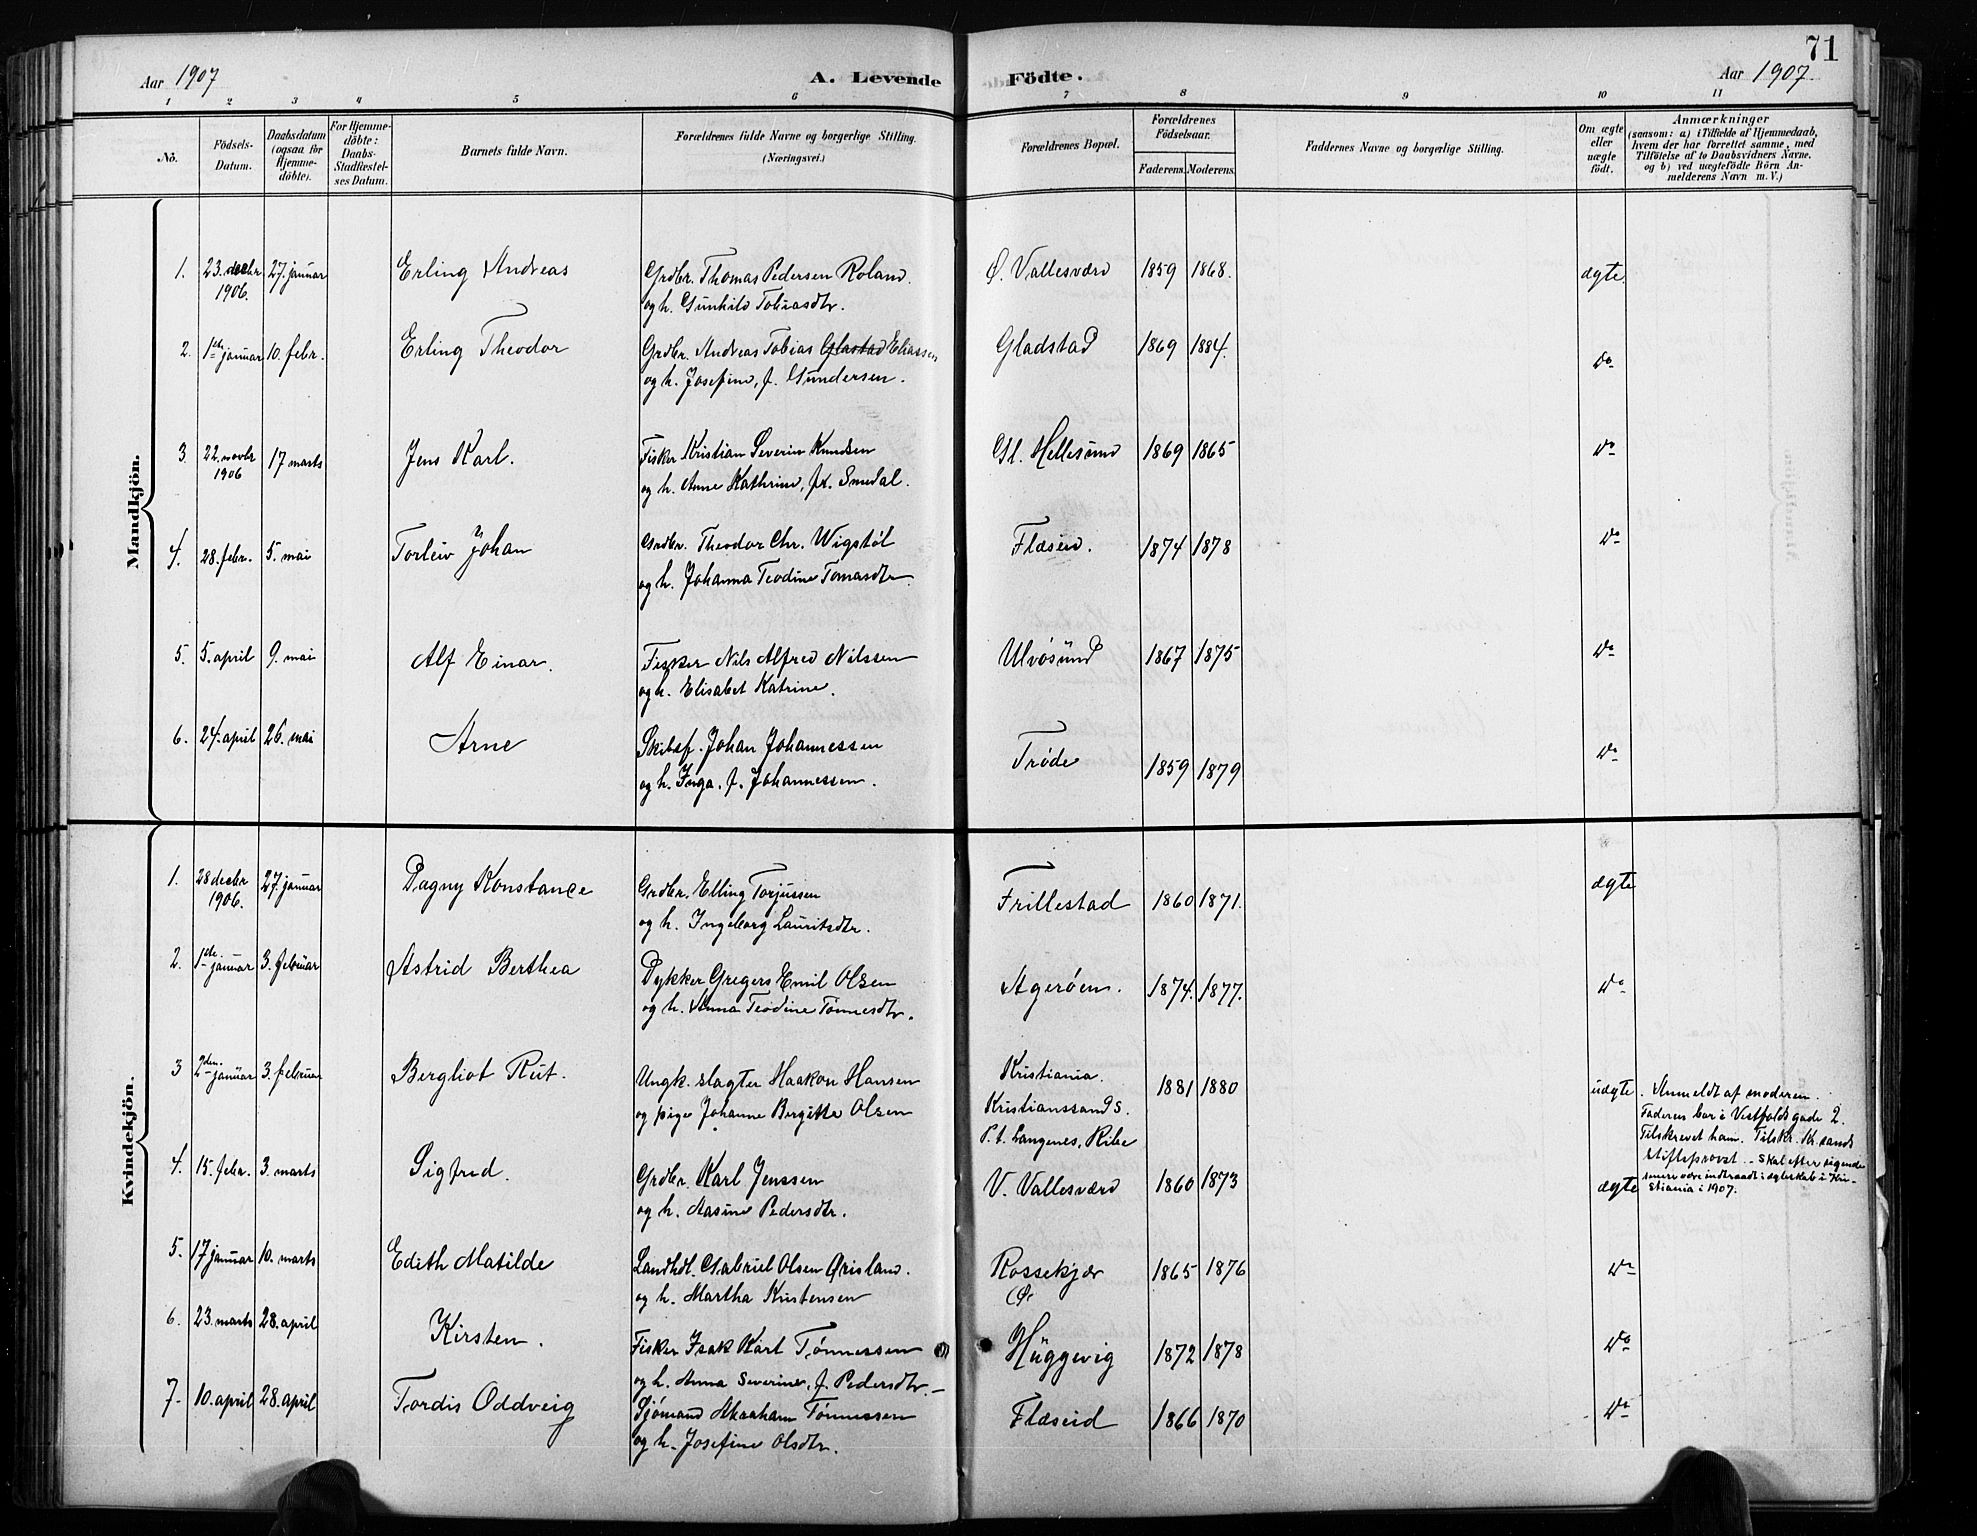 71
Aar 1907
A. Levende Födte.
Aar 1907.
1 2 3 4 5 6 7 8 9 10 11
No.
Födsels-Datum.
Daabsdatum (ogsaa for Hjemme-döbte).
For Hjemme-döbte: Daabs-Stadfæstel-ses Datum.
Barnets fulde Navn.
Forældrenes fulde Navne og borgerlige Stilling. (Næringsvei.)
Forældrenes Bopæl.
Forældrenes Födselsaar.
Faderens. Moderens.
Faddernes Navne og borgerlige Stilling.
Om ægte eller uægte födt.
Anmærkninger
(saasom: a) i Tilfælde af Hjemmedaab,
hvem der har forrettet samme, med
Tilföielse af to Daabsvidners Navne,
og b) ved uægtefödte Börn An-
melderens Navn m. V.)
Mandkjön.
1. 23. decbr 27. januar Erling Andreas Grdbr. Thomas Pedersen Roland Ø. Vallesværd 1859 1868. ægte.
1906. og h. Gunhild Tobiasdtr.
2. 1ste januar 10. febr. Erling Theodor Grdbr. Andreas Tobias Glastad Eliassen Gladstad 1869 1884. do
og h. Josefine, f. Gundersen.
3. 22. novbr 17 marts Jens Karl. Fisker Kristian Severin Knudsen Gl. Hellesund 1869 1865 do
1906 og h. Anne Kathrine, f. Smedal.
4. 28. febr. 5. mai Torleiv Johan Grdbr. Theodor Chr. Wigstøl Flæseid. 1874 1878 do
og h. Johanna Teodine Tomasdtr
5. 5. april 9. mai Alf Einar. Fisker Nils Alfred Nilssen Ulvøsund 1867 1875 do
og h. Elisabet Katrine.
6. 24. april 26. mai Arne Skibsf. Johan Johannessen Trøde 1859 1879 do
og h. Inga, f. Johannessen.
Kvindekjön.
1. 28 decbr 27. januar Dagny Konstance Grdbr. Elling Torjussen Frillestad 1860 1871. ægte
1906. og h. Ingeborg Lauritsdtr.
2. 1ste januar 3. februar Astrid Berthea Dykker Gregers Emil Olsen Agerøen. 1874. 1877. do
og h. Anna Teodine Tønnesdtr.
3 2den januar 3. februar Bergliot Rut. Ungk. slagter Haakon Hansen Kristiania. 1881 1880 uægte. Anmeldt af moderen.
og pige Johanne Birgitte Olsen Kristianssand S. Faderen bor i Vestfolds gade 2.
P. t. Langenes, Ribe Tilskrevet ham. Tilskr. Kr.sands
Stiftsprovst. – Skal efter sigende
senere være indtraadt i ægteskab i Kri-
stiania i 1907.
4. 15. febr. 3. marts Sigfred. Grdbr. Karl Jenssen V. Vallesværd 1860 1873 ægte
og h. Aasine Pedersdtr.
5. 17 januar 10. marts Edith Matilde Landhdl. Gabriel Olsen Ørisland. Rossekjær 1865 1876 do
og h. Martha Kristensen
6. 23. marts 28. april Kirsten. Fisker Isak Karl Tønnessen Huggevig 1872 1878 do
og h. Anna Severine, f. Pedersdtr. –
7. 10. april 28. april Tordis Oddveig Sjømand Abraham Tønnessen Flæseid 1866 1870 do
og h. Josefine Olsdtr.